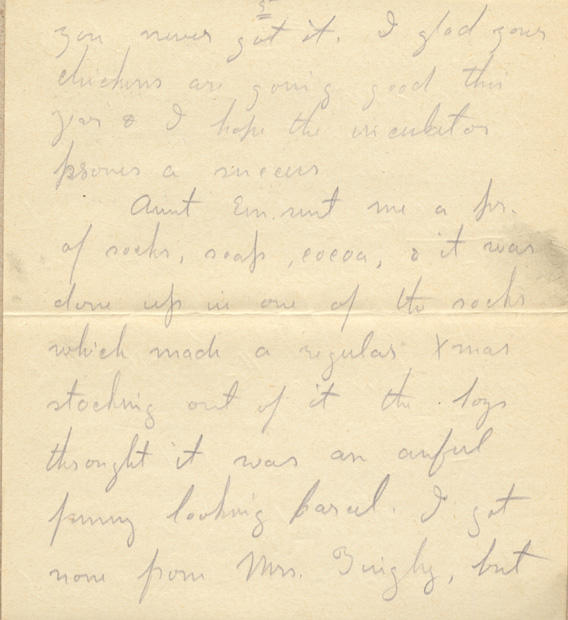 5
you never got it. I glad your
chickens are going good this
year & I hope the incubator
proves a success
Aunt Em. sent me a pr.
of socks, soap, cocoa, & it was
done up in one of the socks
which made a regular Xmas
stocking out of it the boys
thought it was an awful
funny looking parcel. I got
none from Mrs. but